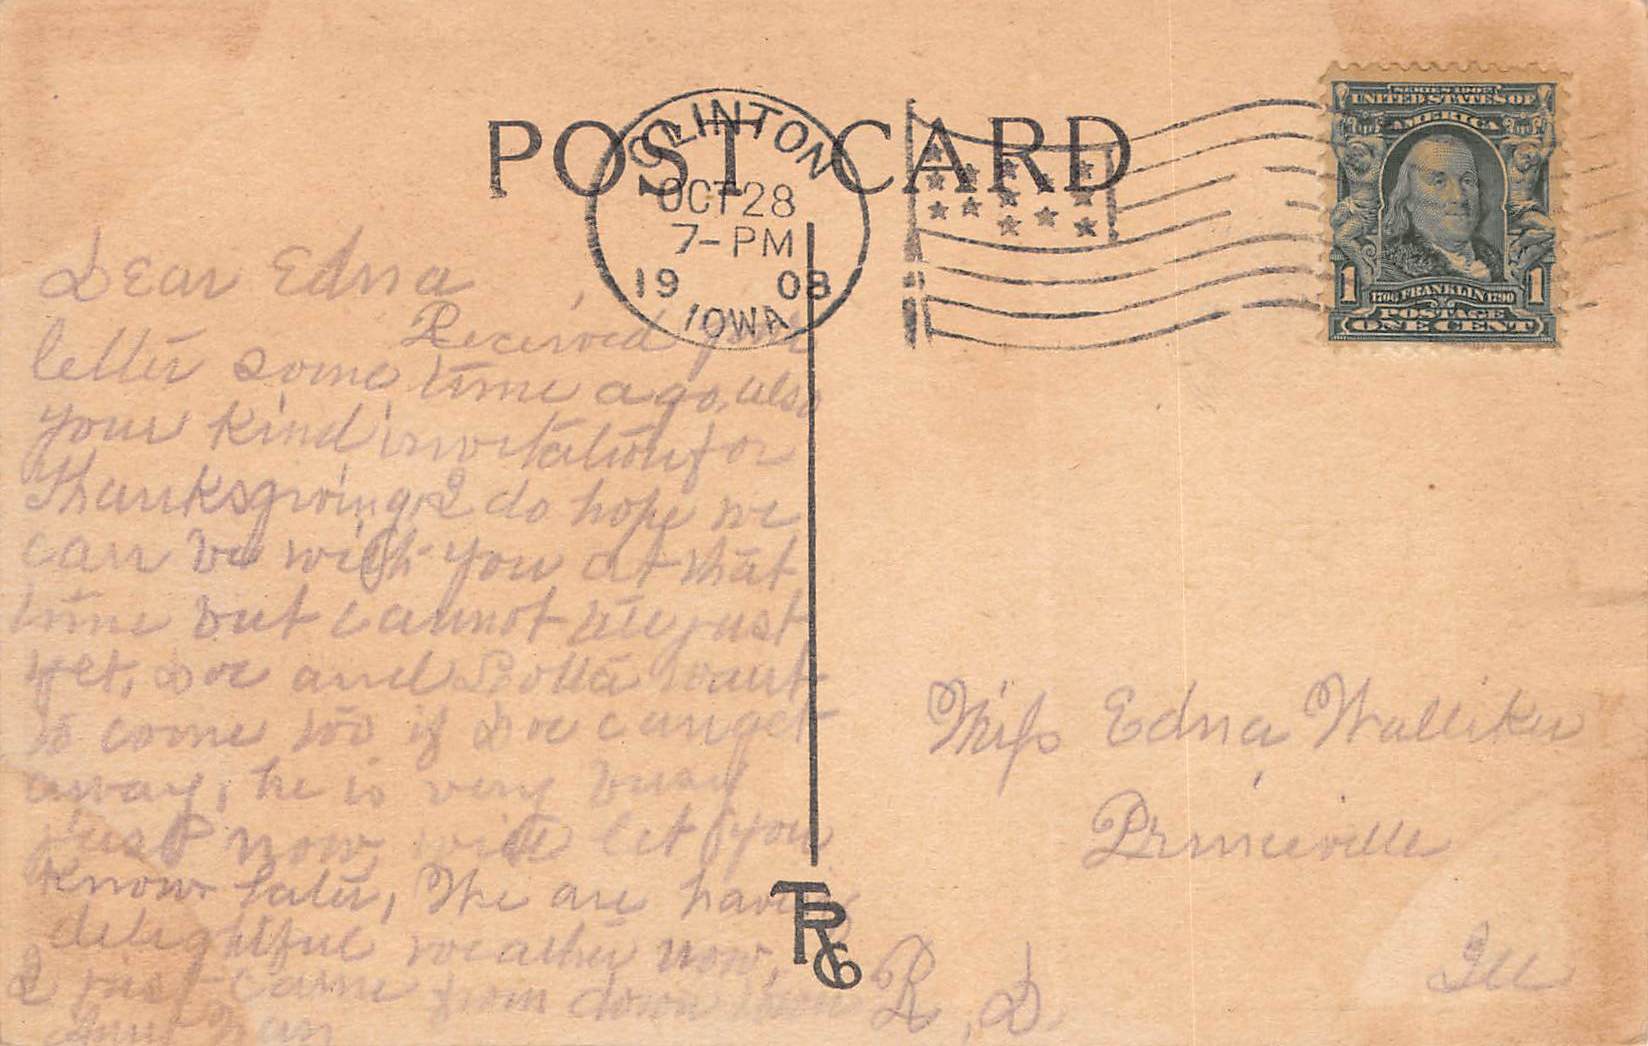 POST CARD
CLINTON
OCT 28
7-PM
19 08
IOWA
SERIES 1902
UNITED STATES OF
AMERICA
1 1706 FRANKLIN 1790 1
POSTAGE
ONE CENT
Dear Edna
Received your
letter some time ago, also
your kind invitation for
Thanksgiving, I do hope we
can be with you at that
time but cannot say just
yet, Doc and Lotta want
to come too if Doc can get
away, he is very busy
just now will let you
know later, We are having
delightful weather now,
I just came from down town
Aunt Nan
Miss Edna Walliker
Princeville
Ill
R, D
TRCo